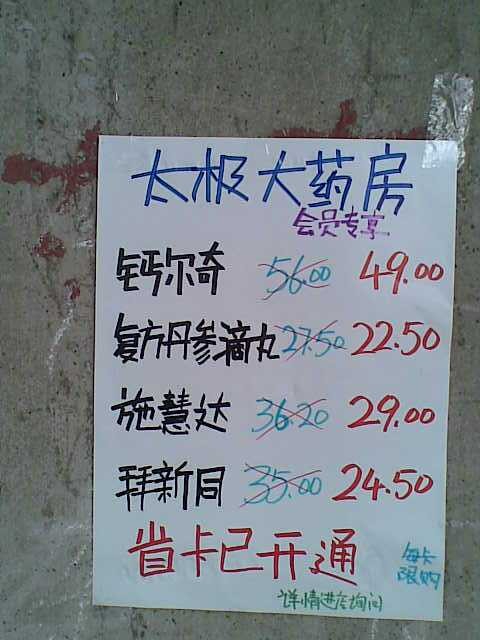 太极大药房
会员专享
钙尔奇 56.00 49.00
复方丹参滴丸 27.50 22.50
施慧达 36.20 29.00
拜新同 35.00 24.50
省卡已开通
每卡
限购
详情进店询问